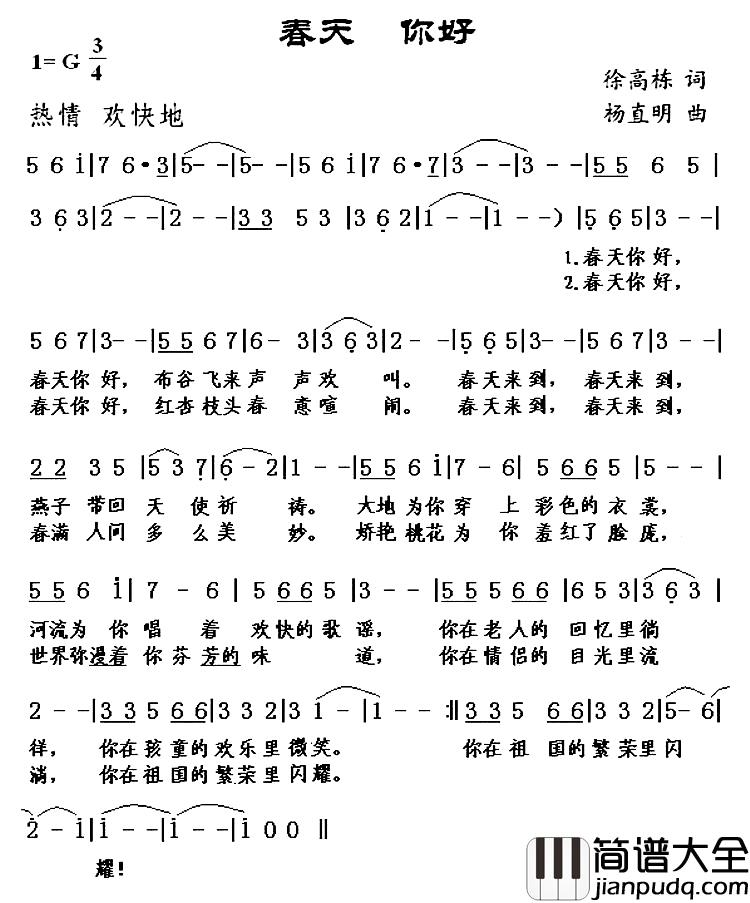 春天 你好
1= G 3/4
徐高栋 词
热情 欢快地
杨直明 曲
5 6 i|7 6·3|5- -|5- -|5 6 i|7 6·7|3 - -|3 - -|5 5 6 5|
3 6 3|2 - -|2 - -|3 3 5 3|3 6 2|1 - -|1 - -)|5 6 5|3 - -|
1.春天你好,
2.春天你好,
5 6 7|3- -|5 5 6 7|6- 3|3 6 3|2 - -|5 6 5|3- -|5 6 7|3 - -|
春天你好, 布谷飞来声 声欢 叫。 春天来到, 春天来到,
春天你好, 红杏枝头春 意喧 闹。 春天来到, 春天来到,
2 2 3 5|5 3 7|6 - 2|1 - -|5 5 6 i|7 - 6|5 6 6 5|5 - -|
燕子 带回 天 使祈 祷。 大地为你穿 上 彩色的衣裳,
春满 人间 多 么美 妙。 娇艳桃花为 你 羞红了脸庞,
5 5 6 i|7 - 6|5 6 6 5|3 - -|5 5 5 6 6|6 5 3|3 6 3|
河流为 你 唱 着 欢快的歌谣, 你在老人的 回忆里徜
世界弥漫着 你芬 芳的味 道, 你在情侣的 目光里流
2 - -|3 3 5 6 6|3 3 2|3 1 -|1 - -:‖3 3 5 6 6|3 3 2|5- 6|
徉, 你在孩童的欢乐里微笑。 你在祖 国的繁荣里闪
淌, 你在祖国的繁荣里闪耀。
2 - i|i - -|i - -|i 0 0‖
耀!
简谱大全
jianpudq.com